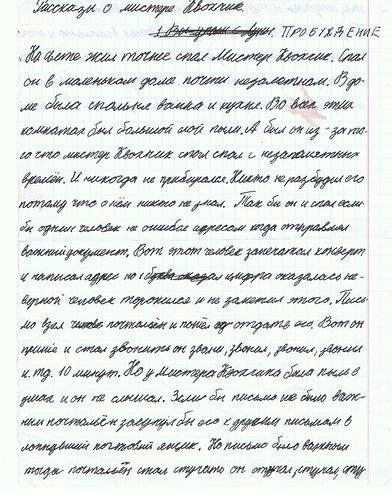 Рассказы о мистере Квохлике.
1 Вот упал с луны. ПРОБУЖДЕНИЕ
На свете жил точнее спал Мистер Квохлик. Спал
он в маленьком доме почти незаметном. В до-
ме была спальня ванна и кухня. Во всех этих
комнатах был большой слой пыли. А был он из-за то-
го что мистер Квохлик спал спал с незапамятных
времён. И никогда не прибирался. Никто не разбудил его
потому что о нём никто не знал. Так бы он и спал если
бы один человек не ошибся адресом когда отправлял
важный документ. Вот этот человек запечатал конверт
и написал адрес но 1 цифра оказалась не-
верной человек торопился и не заметил этого. Пись-
мо взял почтальён и пошёл отдавать его. Вот он
пришёл и стал звонить он звонил, звонил, звонил, звонил
и.т.д. 10 минут. Но у Мистера Квохлика была пыль в
ушах и он не слышал. Если бы письмо не было важ-
ным почтальён засунул бы его к другим письмам в
лопнувший почтовый ящик. Но письмо было важным
тогда почтальён стал стучать он стучал, стучал, сту